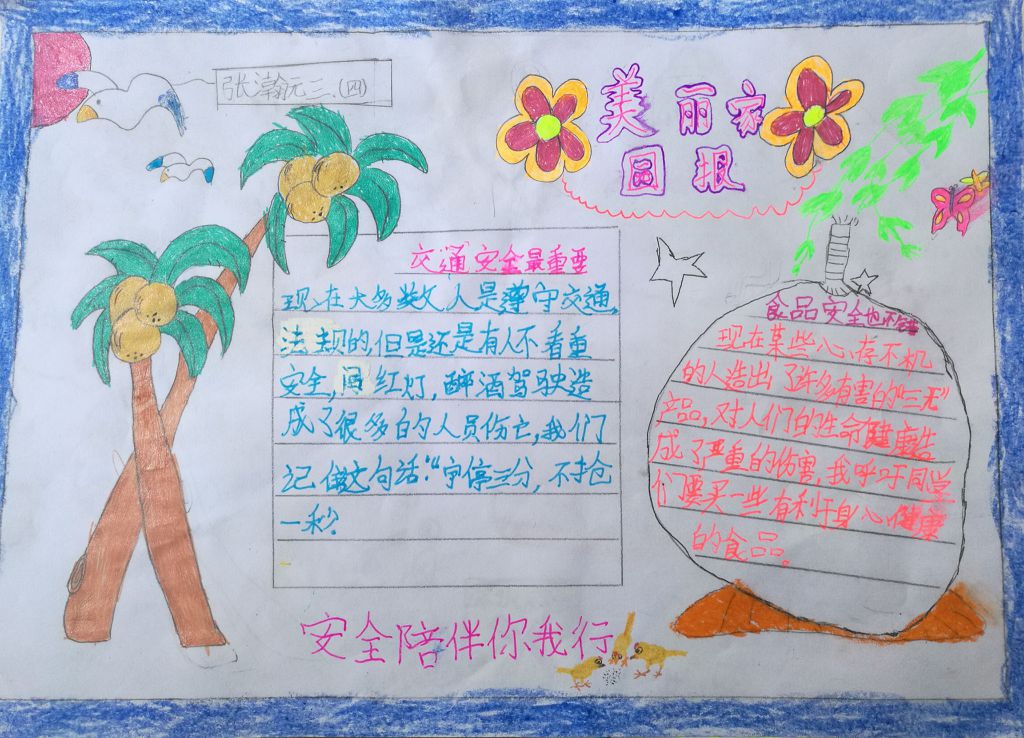 张瀚元三.(四)
美丽家
园报
交通安全最重要
现在大多数人是遵守交通
法规的但是还是有人不看重
安全,闯红灯,醉酒驾驶造
成了很多的人员伤亡,我们
记住这句话:“宁停三分,不抢
一秒?
食品安全也不
现在某些心存不机
的人造出了许多有害的“三无”
产品,对人们的生命健康造
成了严重的伤害,我呼吁同学
们要买一些有利于身心健康
的食品。
安全陪伴你我行